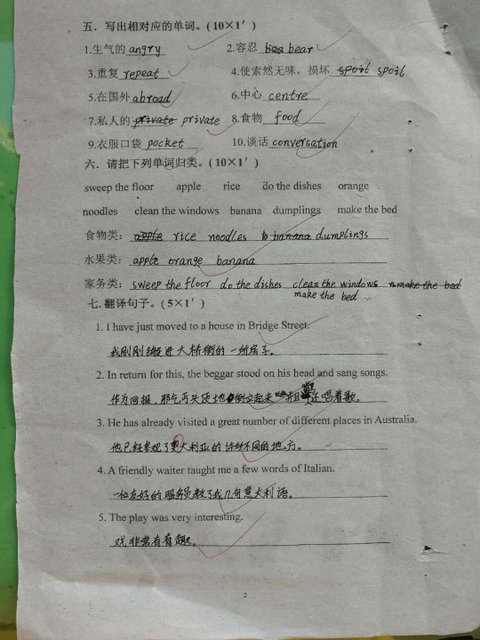 五．写出相对应的单词。(10×1′)
1.生气的 angry 2.容忍 bea bear
3.重复 repeat 4.使索然无味，损坏 spoil spoil
5.在国外 abroad 6.中心 centre
7.私人的 private private 8.食物 food
9.衣服口袋 pocket 10.谈话 conversation
六．请把下列单词归类。(10×1′)
sweep the floor apple rice do the dishes orange
noodles clean the windows banana dumplings make the bed
食物类： apple rice noodles banana dumplings
水果类： apple orange banana
家务类： sweep the floor do the dishes clean the windows make the bed
make the bed
七.翻译句子。(5×1′)
1. I have just moved to a house in Bridge Street.
我刚刚搬进大桥街的一所房子。
2. In return for this, the beggar stood on his head and sang songs.
作为回报，那乞丐头顶地倒立起来 还唱着歌。
3. He has already visited a great number of different places in Australia.
他已经参观了大利亚的许多不同的地方。
4. A friendly waiter taught me a few words of Italian.
一位友好的服务员教了我几句意大利语。
5. The play was very interesting.
戏非常有着趣。
2